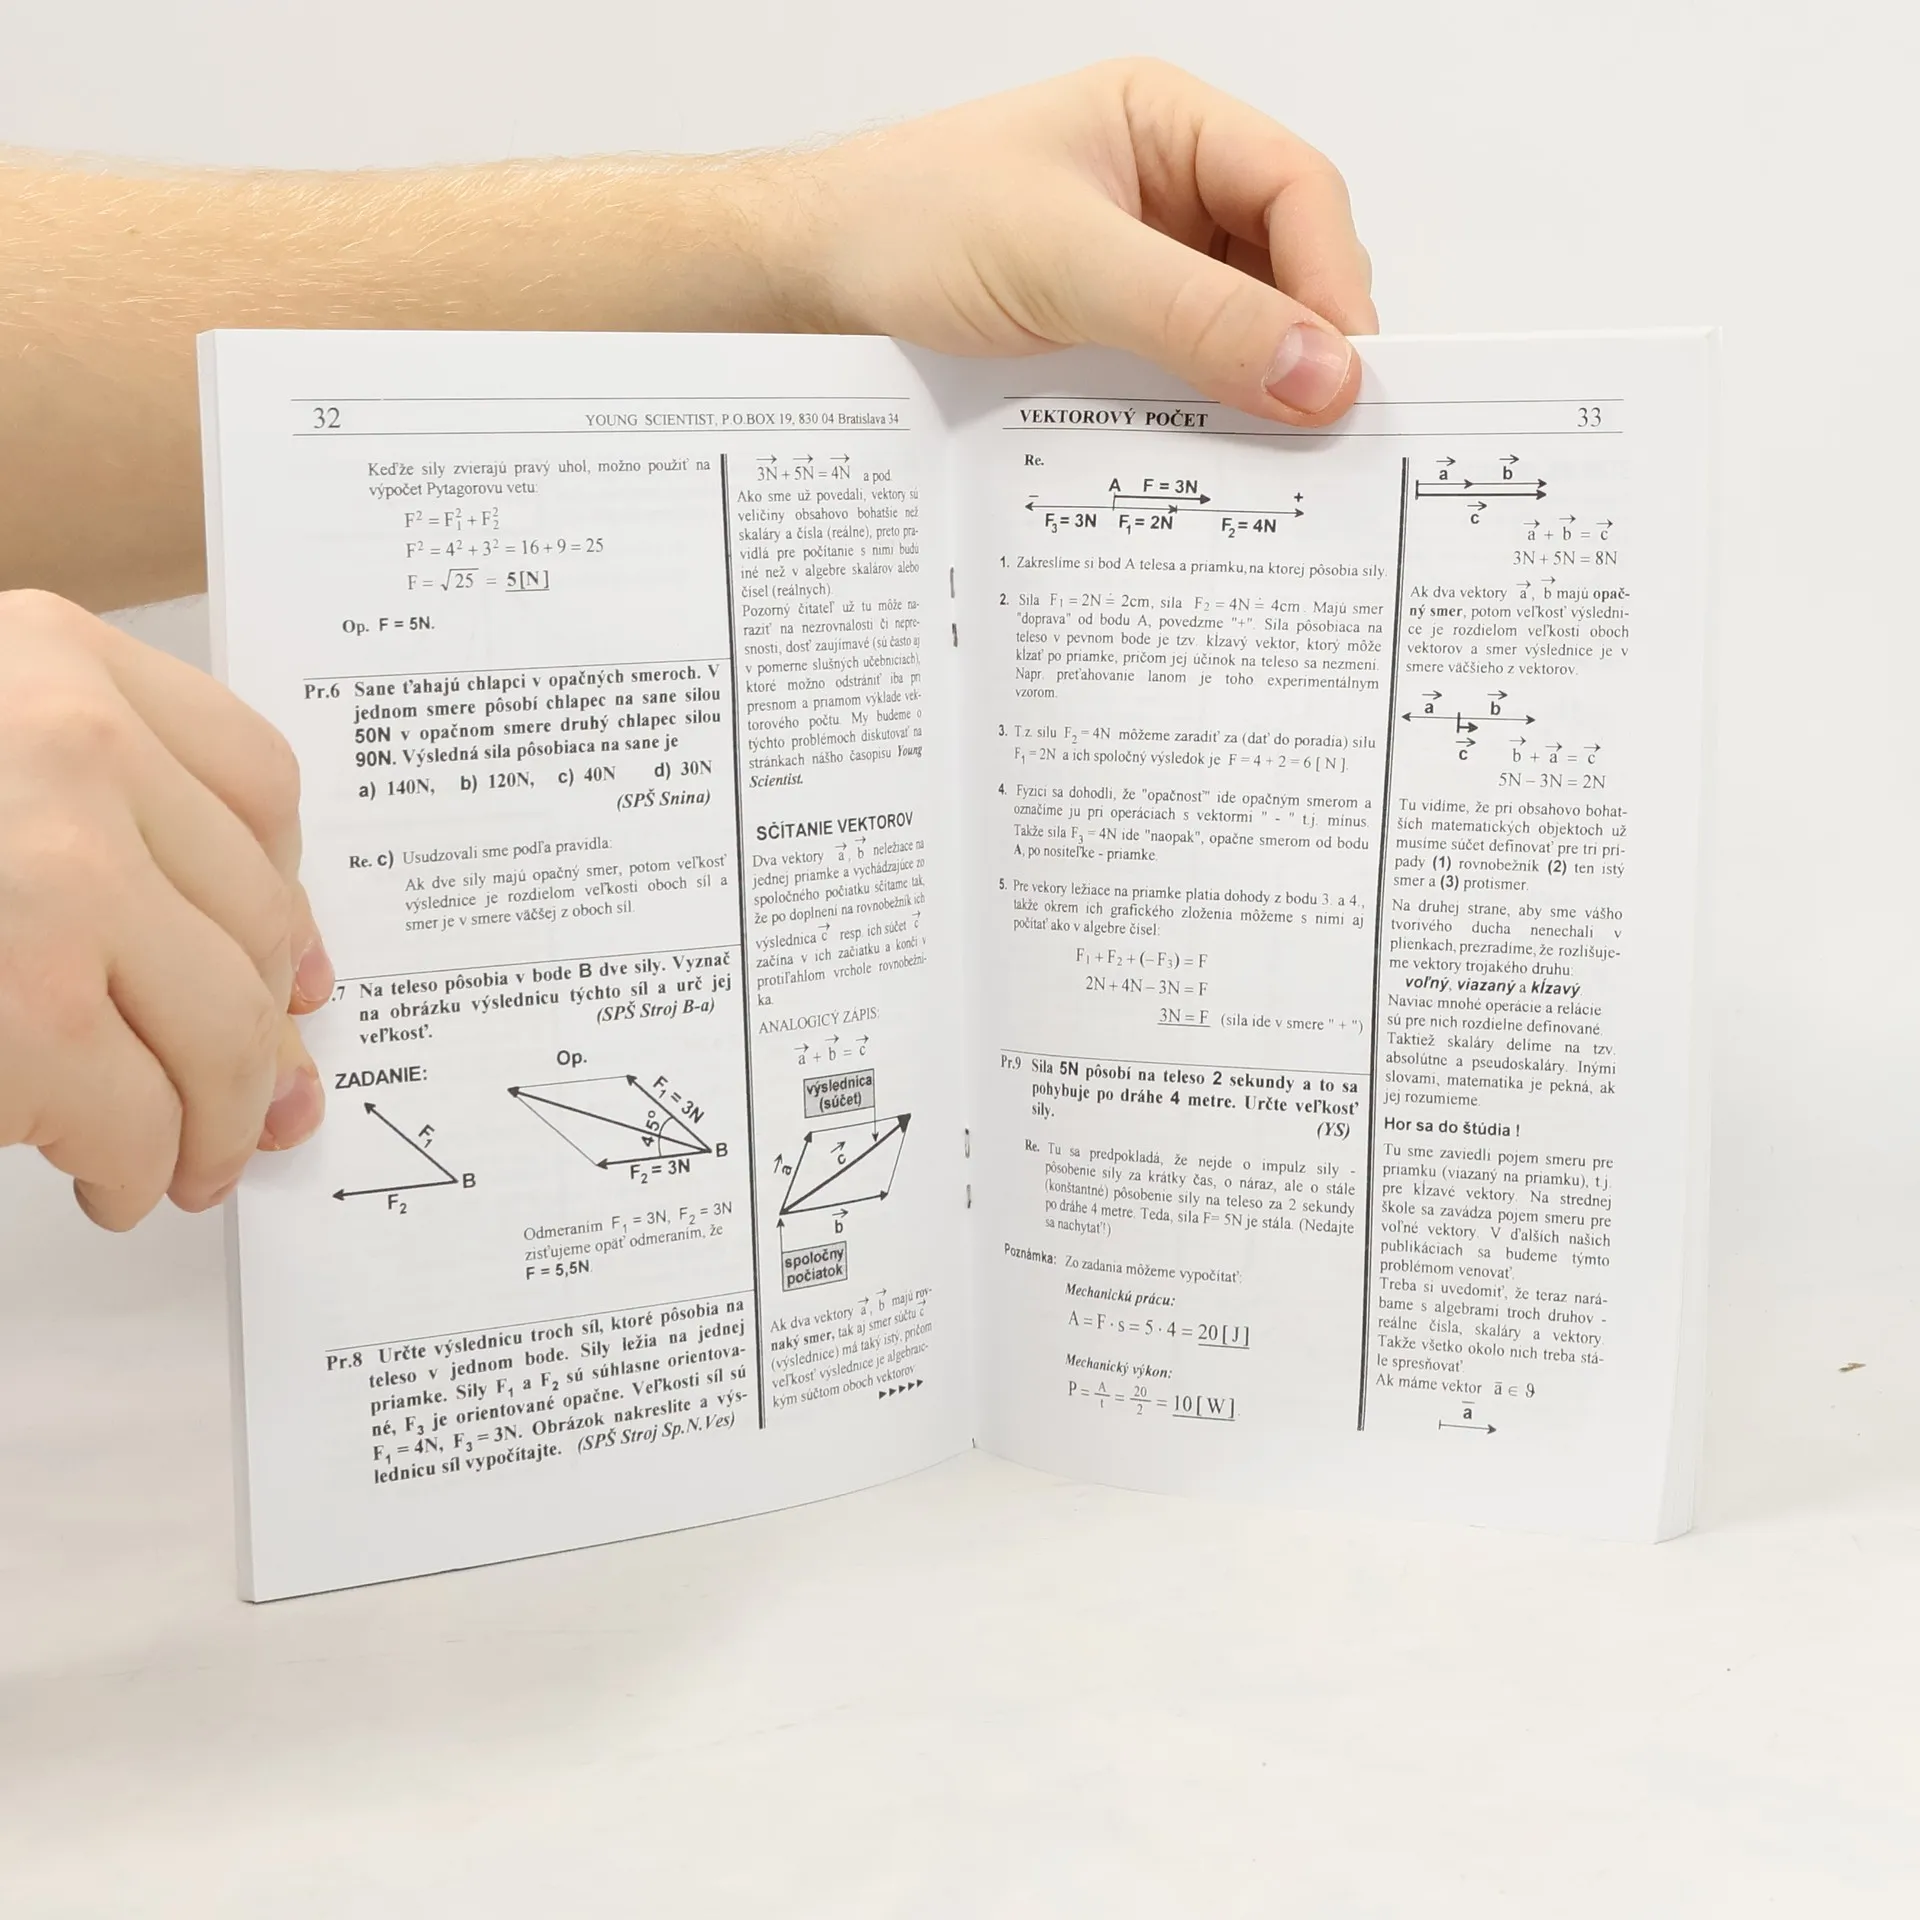 32
YOUNG SCIENTIST, P.O.BOX 19, 830 04 Bratislava 34
Keďže sily zvierajú pravý uhol, možno použiť na
výpočet Pytagorovu vetu:
F² = F₁² + F₂²
F² = 4² + 3² = 16 + 9 = 25
F = √25 = 5[N]
Op. F = 5N.
Pr.6 Sane ťahajú chlapci v opačných smeroch. V
jednom smere pôsobí chlapec na sane silou
50N v opačnom smere druhý chlapec silou
90N. Výsledná sila pôsobiaca na sane je
a) 140N, b) 120N, c) 40N d) 30N
(SPŠ Snina)
Re. c) Usudzovali sme podľa pravidla:
Ak dve sily majú opačný smer, potom veľkosť
výslednice je rozdielom veľkosti oboch síl a
smer je v smere väčšej z oboch síl.
.7 Na teleso pôsobia v bode B dve sily. Vyznač
na obrázku výslednicu týchto síl a urč jej
veľkosť. (SPŠ Stroj B-a)
ZADANIE:
F₁
B
F₂
Op.
F₁ = 3N
45°
B
F₂ = 3N
Odmeraním F₁ = 3N, F₂ = 3N
zisťujeme opäť odmeraním, že
F = 5,5N.
Pr.8 Určte výslednicu troch síl, ktoré pôsobia na
teleso v jednom bode. Sily ležia na jednej
priamke. Sily F₁ a F₂ sú súhlasne orientova-
né, F₃ je orientované opačne. Veľkosti síl sú
F₁ = 4N, F₃ = 3N. Obrázok nakreslite a výs-
lednicu síl vypočítajte. (SPŠ Stroj Sp.N.Ves)
3N + 5N = 4N a pod.
Ako sme už povedali, vektory sú
veličiny obsahovo bohatšie než
skaláry a čísla (reálne), preto pra-
vidlá pre počítanie s nimi budú
iné než v algebre skalárov alebo
čísel (reálnych).
Pozorný čitateľ už tu môže na-
raziť na nezrovnalosti či nepre-
snosti, dosť zaujímavé (sú často aj
v pomerne slušných učebniciach),
ktoré možno odstrániť iba pri
presnom a priamom výklade vek-
torového počtu. My budeme o
týchto problémoch diskutovať na
stránkach nášho časopisu Young
Scientist.
SČÍTANIE VEKTOROV
Dva vektory a⃗, b⃗ neležiace na
jednej priamke a vychádzajúce zo
spoločného počiatku sčítame tak,
že po doplnení na rovnobežník ich
výslednica c⃗ resp. ich súčet c⃗
začína v ich začiatku a končí v
protiľahlom vrchole rovnobežní-
ka.
ANALOGICÝ ZÁPIS:
a⃗ + b⃗ = c⃗
výslednica
(súčet)
a⃗
c⃗
b⃗
spoločný
počiatok
Ak dva vektory a⃗, b⃗ majú rov-
naký smer, tak aj smer súčtu c⃗
(výslednice) má taký istý, pričom
veľkosť výslednice je algebraic-
kým súčtom oboch vektorov.
VEKTOROVÝ POČET
33
Re.
A F = 3N
− +
F₃ = 3N F₁ = 2N F₂ = 4N
1. Zakreslíme si bod A telesa a priamku, na ktorej pôsobia sily.
2. Sila F₁ = 2N ≐ 2cm, sila F₂ = 4N ≐ 4cm. Majú smer
"doprava" od bodu A, povedzme "+". Sila pôsobiaca na
teleso v pevnom bode je tzv. kĺzavý vektor, ktorý môže
kĺzať po priamke, pričom jej účinok na teleso sa nezmení.
Napr. preťahovanie lanom je toho experimentálnym
vzorom.
3. T.z. silu F₂ = 4N môžeme zaradiť za (dať do poradia) silu
F₁ = 2N a ich spoločný výsledok je F = 4 + 2 = 6 [ N ].
4. Fyzici sa dohodli, že "opačnosť" ide opačným smerom a
označíme ju pri operáciach s vektormi " - " t.j. mínus.
Takže sila F₃ = 4N ide "naopak", opačne smerom od bodu
A, po nositeľke - priamke.
5. Pre vekory ležiace na priamke platia dohody z bodu 3. a 4.,
takže okrem ich grafického zloženia môžeme s nimi aj
počítať ako v algebre čísel:
F₁ + F₂ + (−F₃) = F
2N + 4N − 3N = F
3N = F (sila ide v smere " + ")
Pr.9 Sila 5N pôsobí na teleso 2 sekundy a to sa
pohybuje po dráhe 4 metre. Určte veľkosť
sily. (YS)
Re. Tu sa predpokladá, že nejde o impulz sily -
pôsobenie sily za krátky čas, o náraz, ale o stále
(konštantné) pôsobenie sily na teleso za 2 sekundy
po dráhe 4 metre. Teda, sila F= 5N je stála. (Nedajte
sa nachytať!)
Poznámka: Zo zadania môžeme vypočítať:
Mechanickú prácu:
A = F · s = 5 · 4 = 20 [ J ]
Mechanický výkon:
P = A/t = 20/2 = 10 [ W ].
a⃗ b⃗
c⃗
a⃗ + b⃗ = c⃗
3N + 5N = 8N
Ak dva vektory a⃗, b⃗ majú opač-
ný smer, potom veľkosť výsledni-
ce je rozdielom veľkosti oboch
vektorov a smer výslednice je v
smere väčšieho z vektorov.
a⃗ b⃗
c⃗
b⃗ + a⃗ = c⃗
5N − 3N = 2N
Tu vidíme, že pri obsahovo bohat-
ších matematických objektoch už
musíme súčet definovať pre tri prí-
pady (1) rovnobežník (2) ten istý
smer a (3) protismer.
Na druhej strane, aby sme vášho
tvorivého ducha nenechali v
plienkach, prezradíme, že rozlišuje-
me vektory trojakého druhu:
voľný, viazaný a kĺzavý.
Naviac mnohé operácie a relácie
sú pre nich rozdielne definované.
Taktiež skaláry delíme na tzv.
absolútne a pseudoskaláry. Inými
slovami, matematika je pekná, ak
jej rozumieme.
Hor sa do štúdia !
Tu sme zaviedli pojem smeru pre
priamku (viazaný na priamku), t.j.
pre kĺzavé vektory. Na strednej
škole sa zavádza pojem smeru pre
voľné vektory. V ďalších našich
publikáciach sa budeme týmto
problémom venovať.
Treba si uvedomiť, že teraz nará-
bame s algebrami troch druhov -
reálne čísla, skaláry a vektory.
Takže všetko okolo nich treba stá-
le spresňovať.
Ak máme vektor a̅ ∈ ϑ
a̅